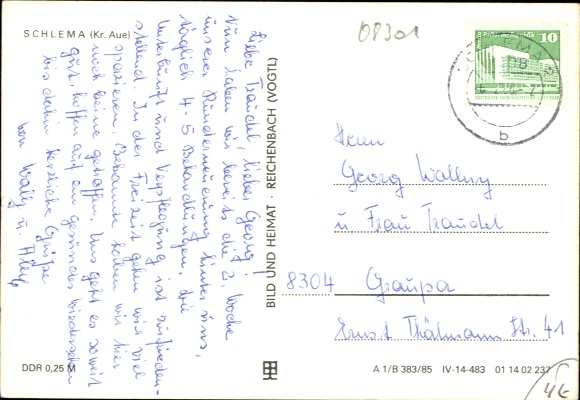 SCHLEMA (Kr. Aue)
08301
Liebe Traudel, lieber Georg!
Nun haben wir bereits die 2. Woche
unserer Runderneuerung hinter uns,
täglich 4-5 Behandlungen. Die
Unterkunft und Verpflegung ist zufrieden-
stellend. In der Freizeit gehen wir viel
spazieren. Bekannte haben wir hier
noch keine getroffen. Uns geht es soweit
gut, hoffen auf ein gesundes Wiedersehen
bis dahin herzliche Grüße
von Wally u.
BILD UND HEIMAT · REICHENBACH (VOGTL)
10
b
Herrn
Georg
u Frau Traudel
8304 Graupa
Ernst Thälmann Str. 41
DDR 0,25 M
A 1/B 383/85 IV-14-483 01 14 02 232
4€